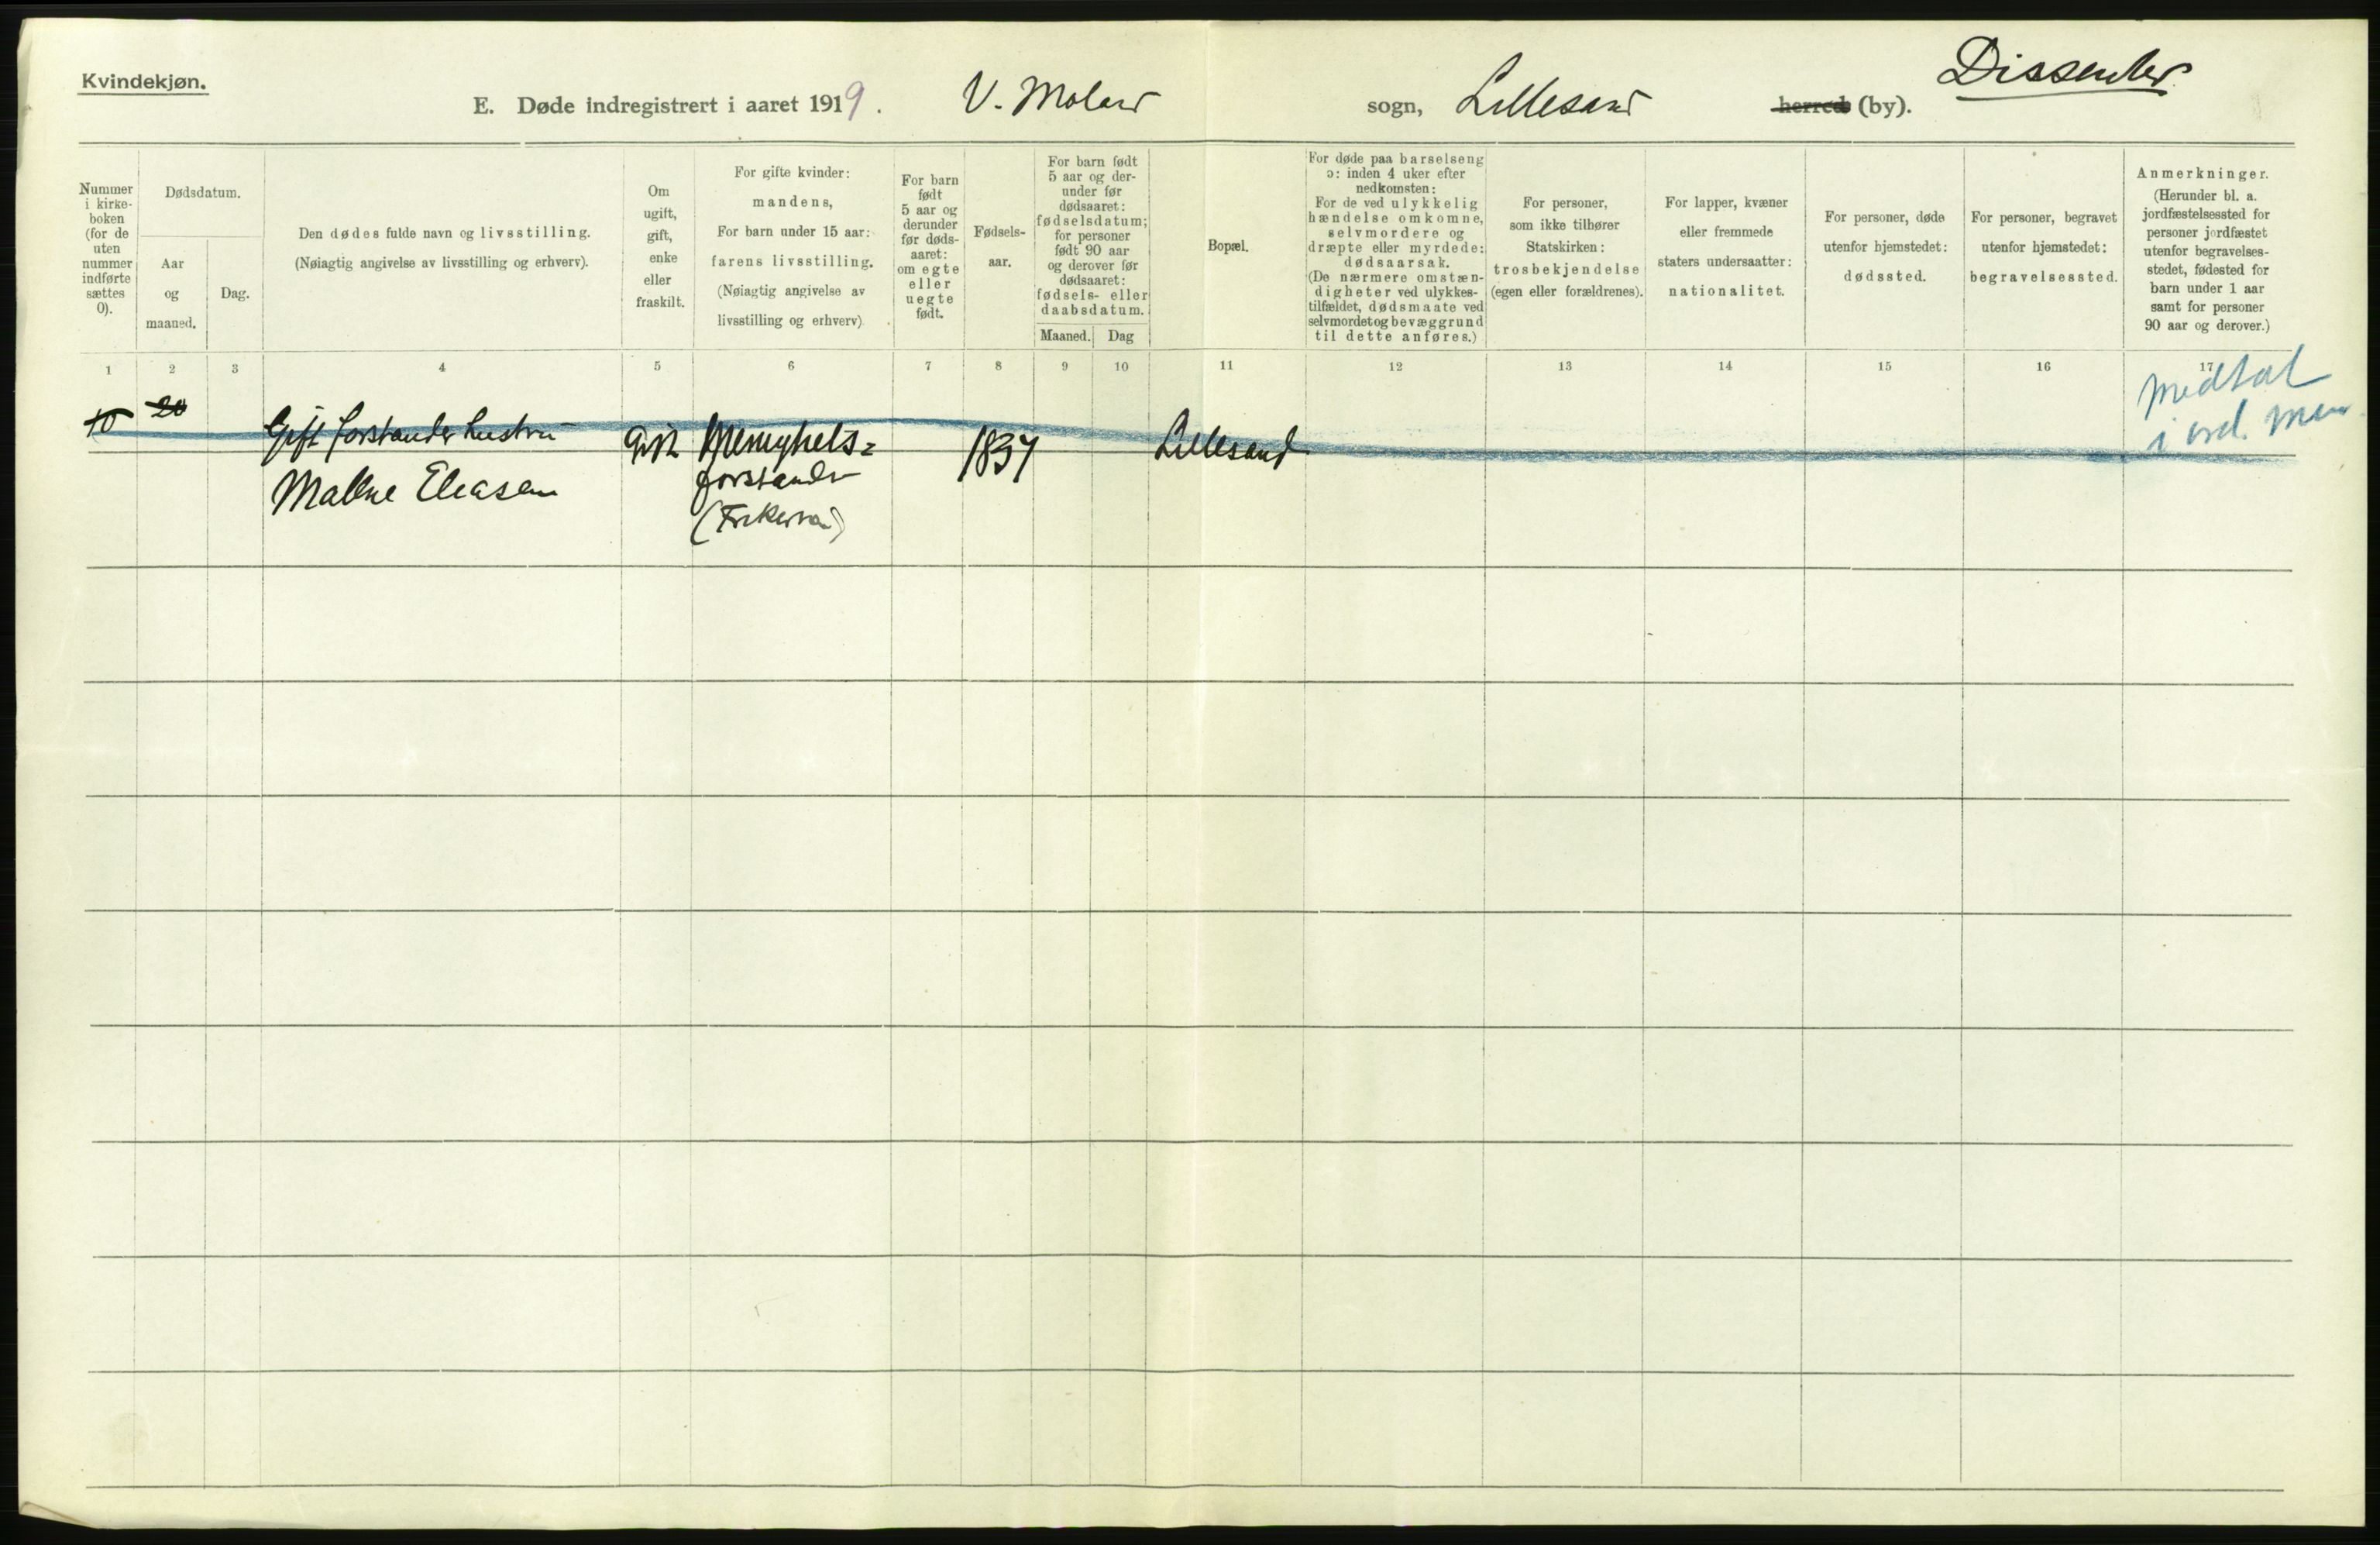 Kvindekjøn.
Dissenter
E. Døde indregistrert i aaret 1919. V. Moland sogn, Lillesand herred (by).
Nummer
i kirke-
boken
(for de
uten
nummer
indførte
sættes
0).
Dødsdatum.
Aar
og
maaned.
Dag.
Den dødes fulde navn og livsstilling.
(Nøiagtig angivelse av livsstilling og erhverv).
Om
ugift,
gift,
enke
eller
fraskilt.
For gifte kvinder:
mandens,
For barn under 15 aar:
farens livsstilling.
(Nøiagtig angivelse av
livsstilling og erhverv)
For barn
født
5 aar og
derunder
før døds-
aaret:
om egte
eller
uegte
født.
Fødsels-
aar.
For barn født
5 aar og der-
under før
dødsaaret:
fødselsdatum;
for personer
født 90 aar
og derover før
dødsaaret:
fødsels- eller
daabsdatum.
Maaned. Dag
Bopæl.
For døde paa barselseng
ɔ: inden 4 uker efter
nedkomsten:
For de ved ulykkelig
hændelse omkomne,
selvmordere og
dræpte eller myrdede:
dødsaarsak.
(De nærmere omstæn-
digheter ved ulykkes-
tilfældet, dødsmaate ved
selvmordet og bevæggrund
til dette anføres.)
For personer,
som ikke tilhører
Statskirken:
trosbekjendelse
(egen eller forældrenes).
For lapper, kvæner
eller fremmede
staters undersaatter:
nationalitet.
For personer, døde
utenfor hjemstedet:
dødssted.
For personer, begravet
utenfor hjemstedet:
begravelsessted.
Anmerkninger.
(Herunder bl. a.
jordfæstelsessted for
personer jordfæstet
utenfor begravelses-
stedet, fødested for
barn under 1 aar
samt for personer
90 aar og derover.)
1 2 3 4 5 6 7 8 9 10 11 12 13 14 15 16 17
10 20
Gift forstander hustru
Malene Eleasen
Gift
Menighets=
forstander
1837
Lillesand
Medtat
i ord.